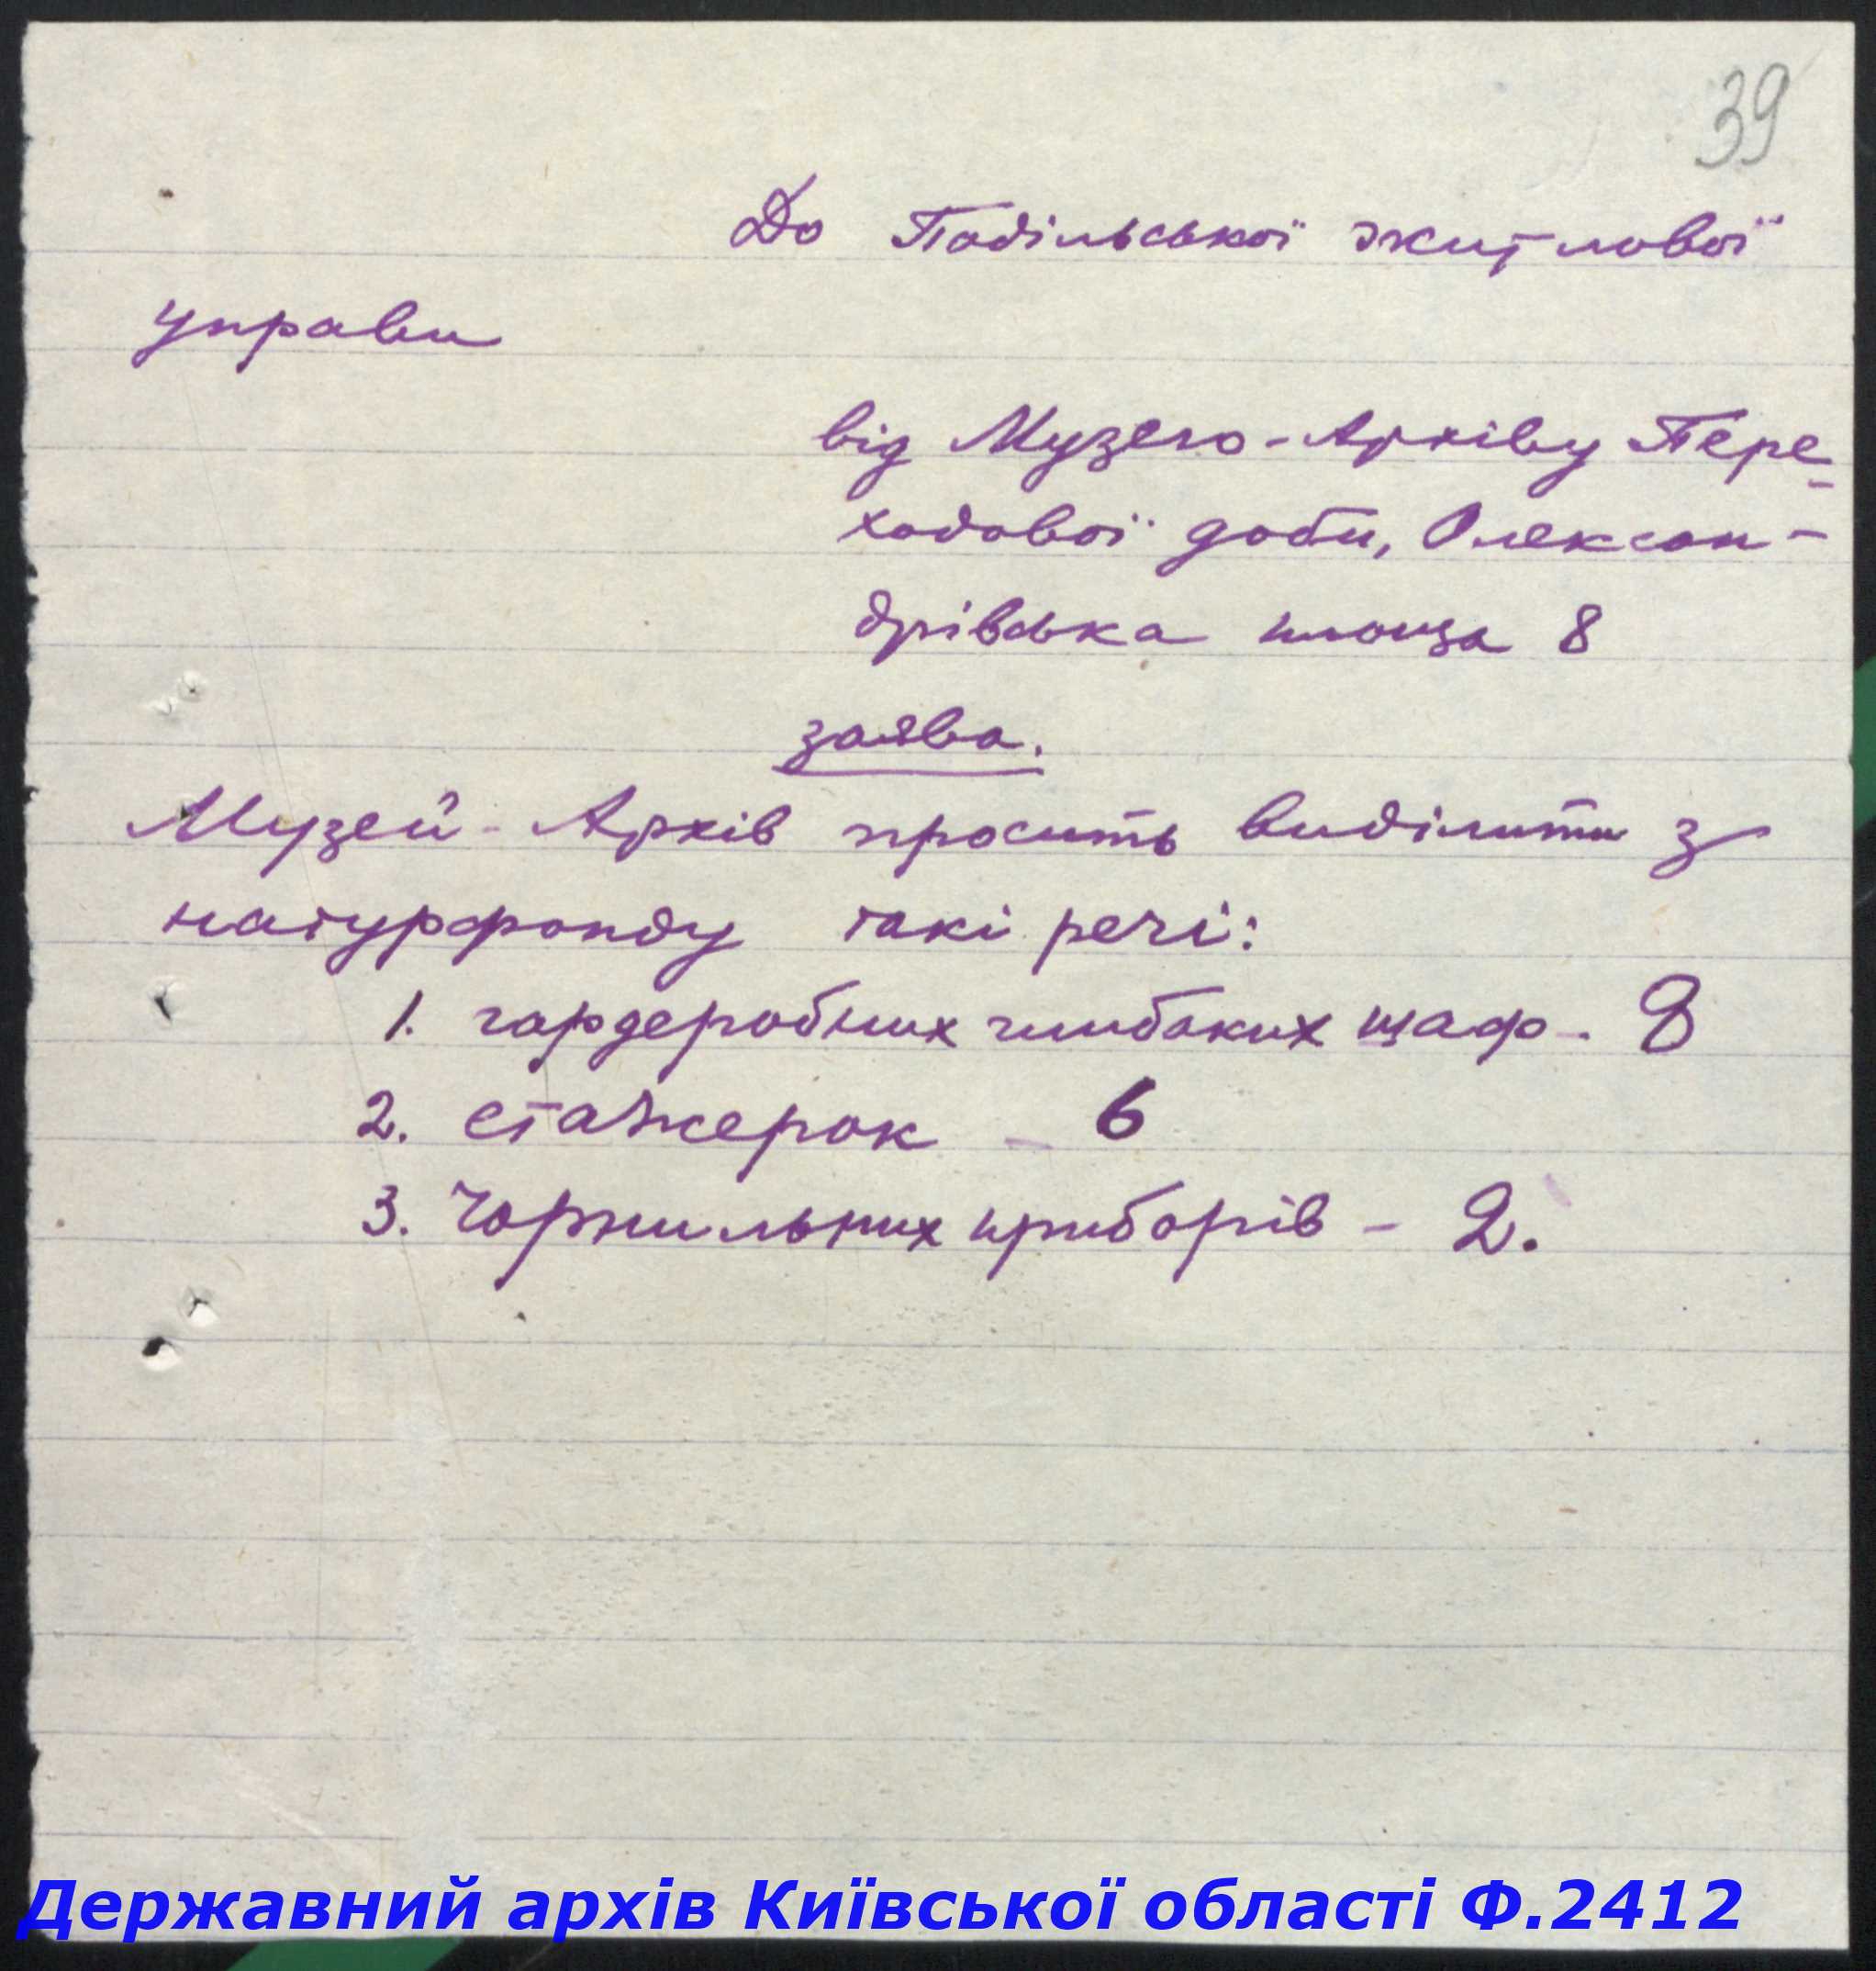 39
До Подільської житлової
управи
від Музею-Архіву Пере-
ходової доби, Олексан-
дрівська площа 8
заява.
Музей-Архів просить виділити з
натурфонду такі речі:
1. гардеробних глибоких шаф - 8
2. етажерок - 6
3. Чорнильних приборів - 2.
Державний архів Київської області Ф.2412